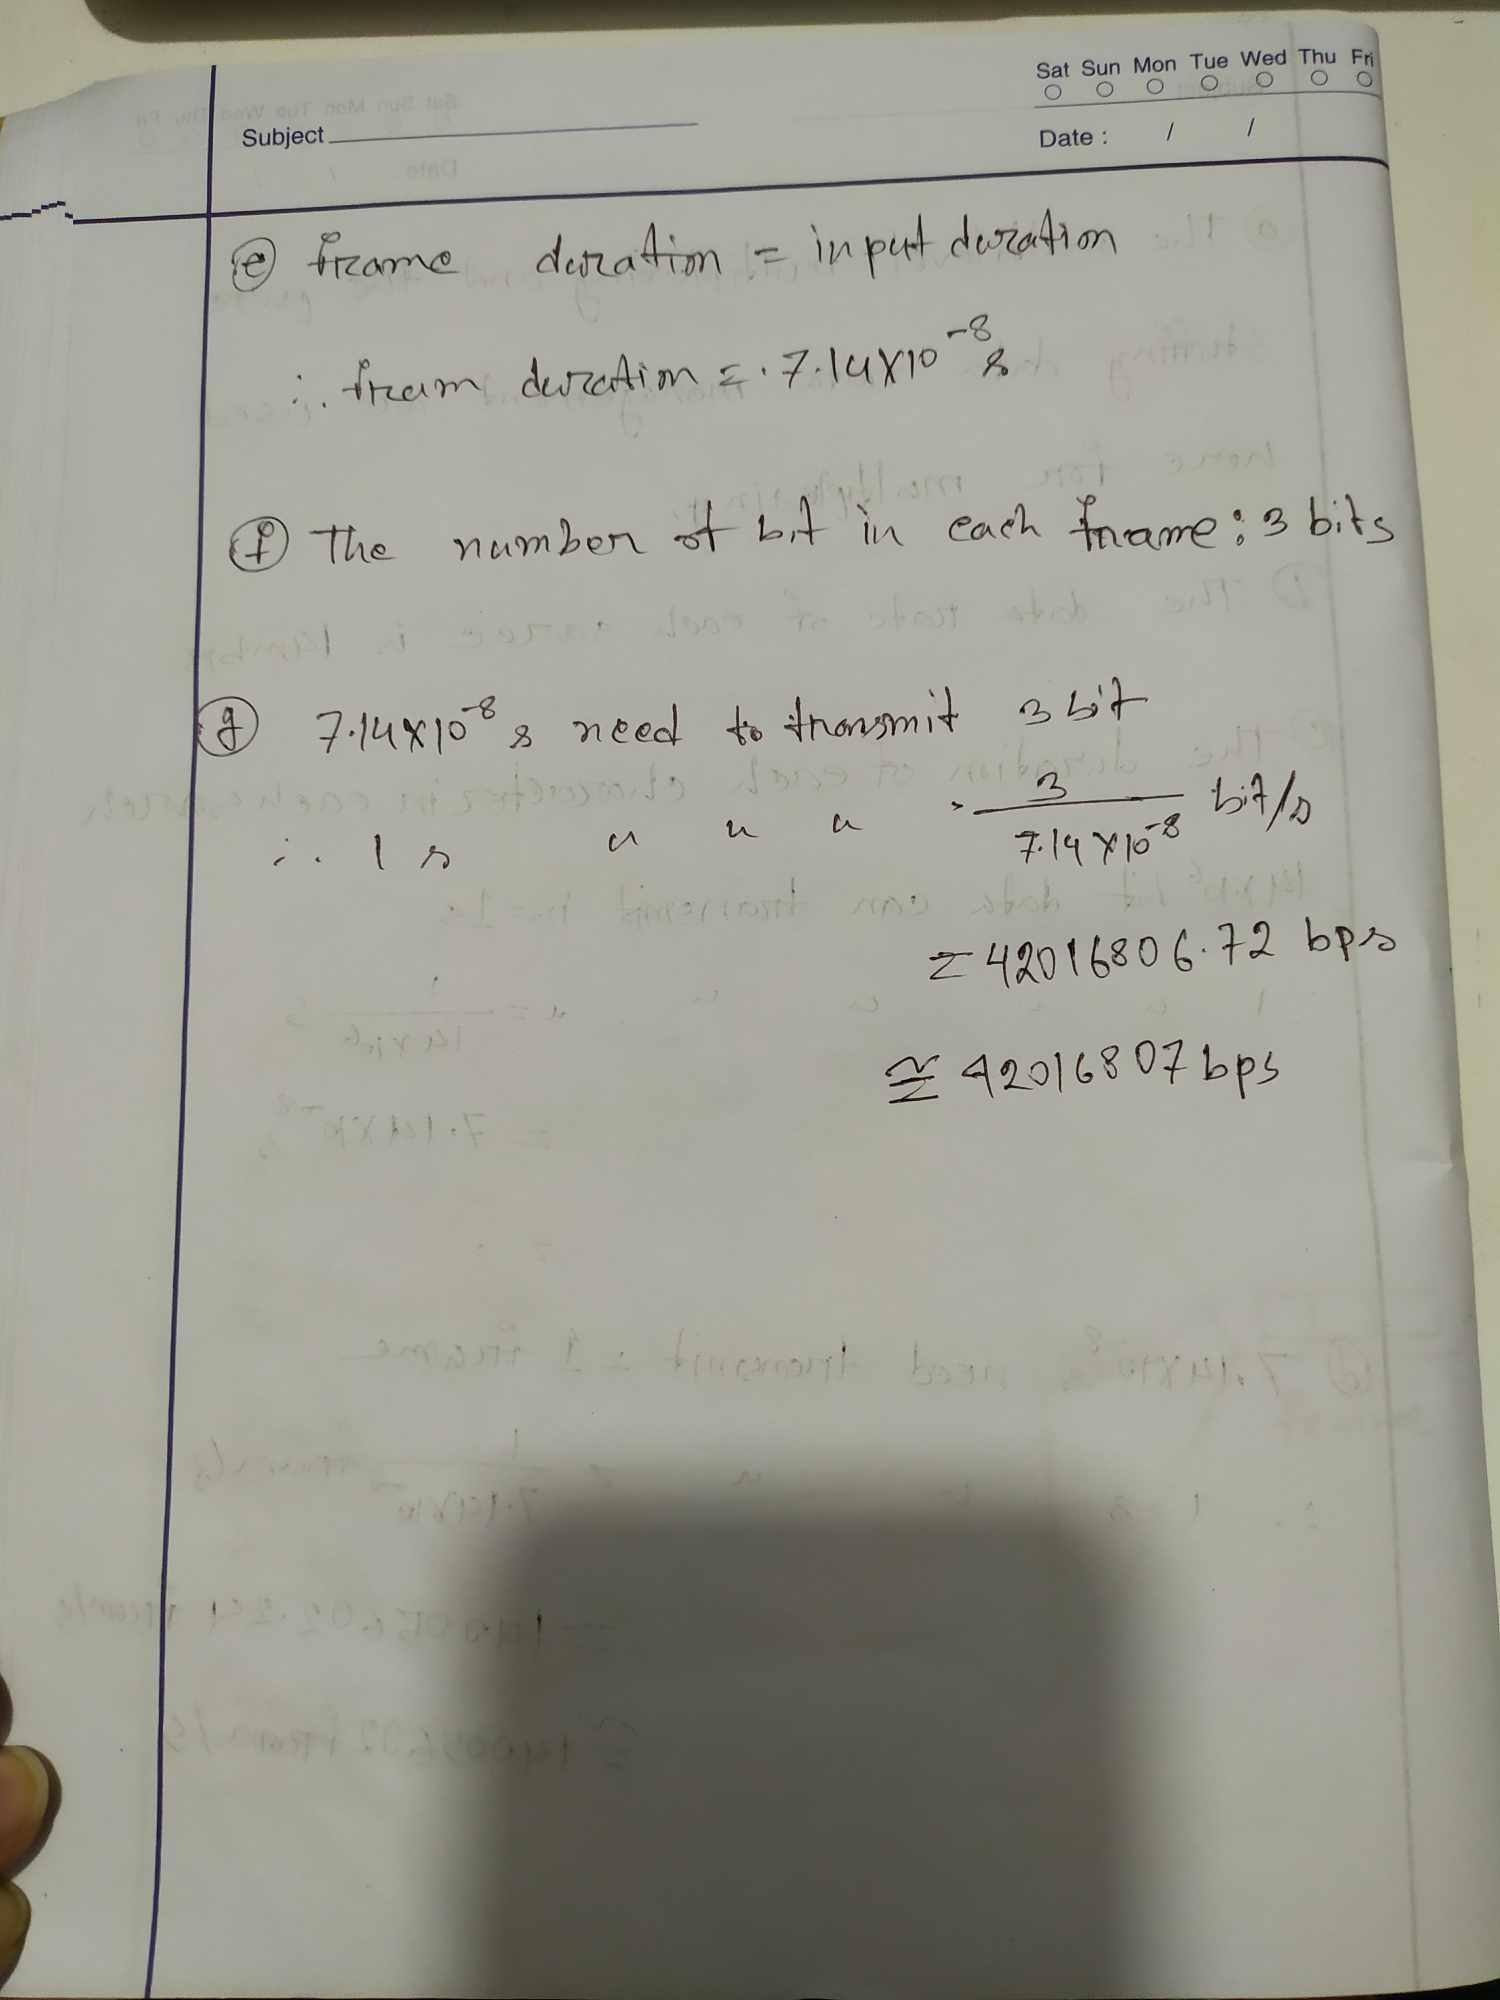 Sat Sun Mon Tue Wed Thu Fri
Subject
Date : / /
ⓔ frame duration = input duration
∴ fram duration = .7.14×10⁻⁸ s
ⓕ The number of bit in each frame: 3 bits
ⓖ 7.14×10⁻⁸ s need to transmit 3 bit
∴ 1 s " " " 3 / 7.14×10⁻⁸ bit/s
= 42016806.72 bps
≅ 42016807 bps